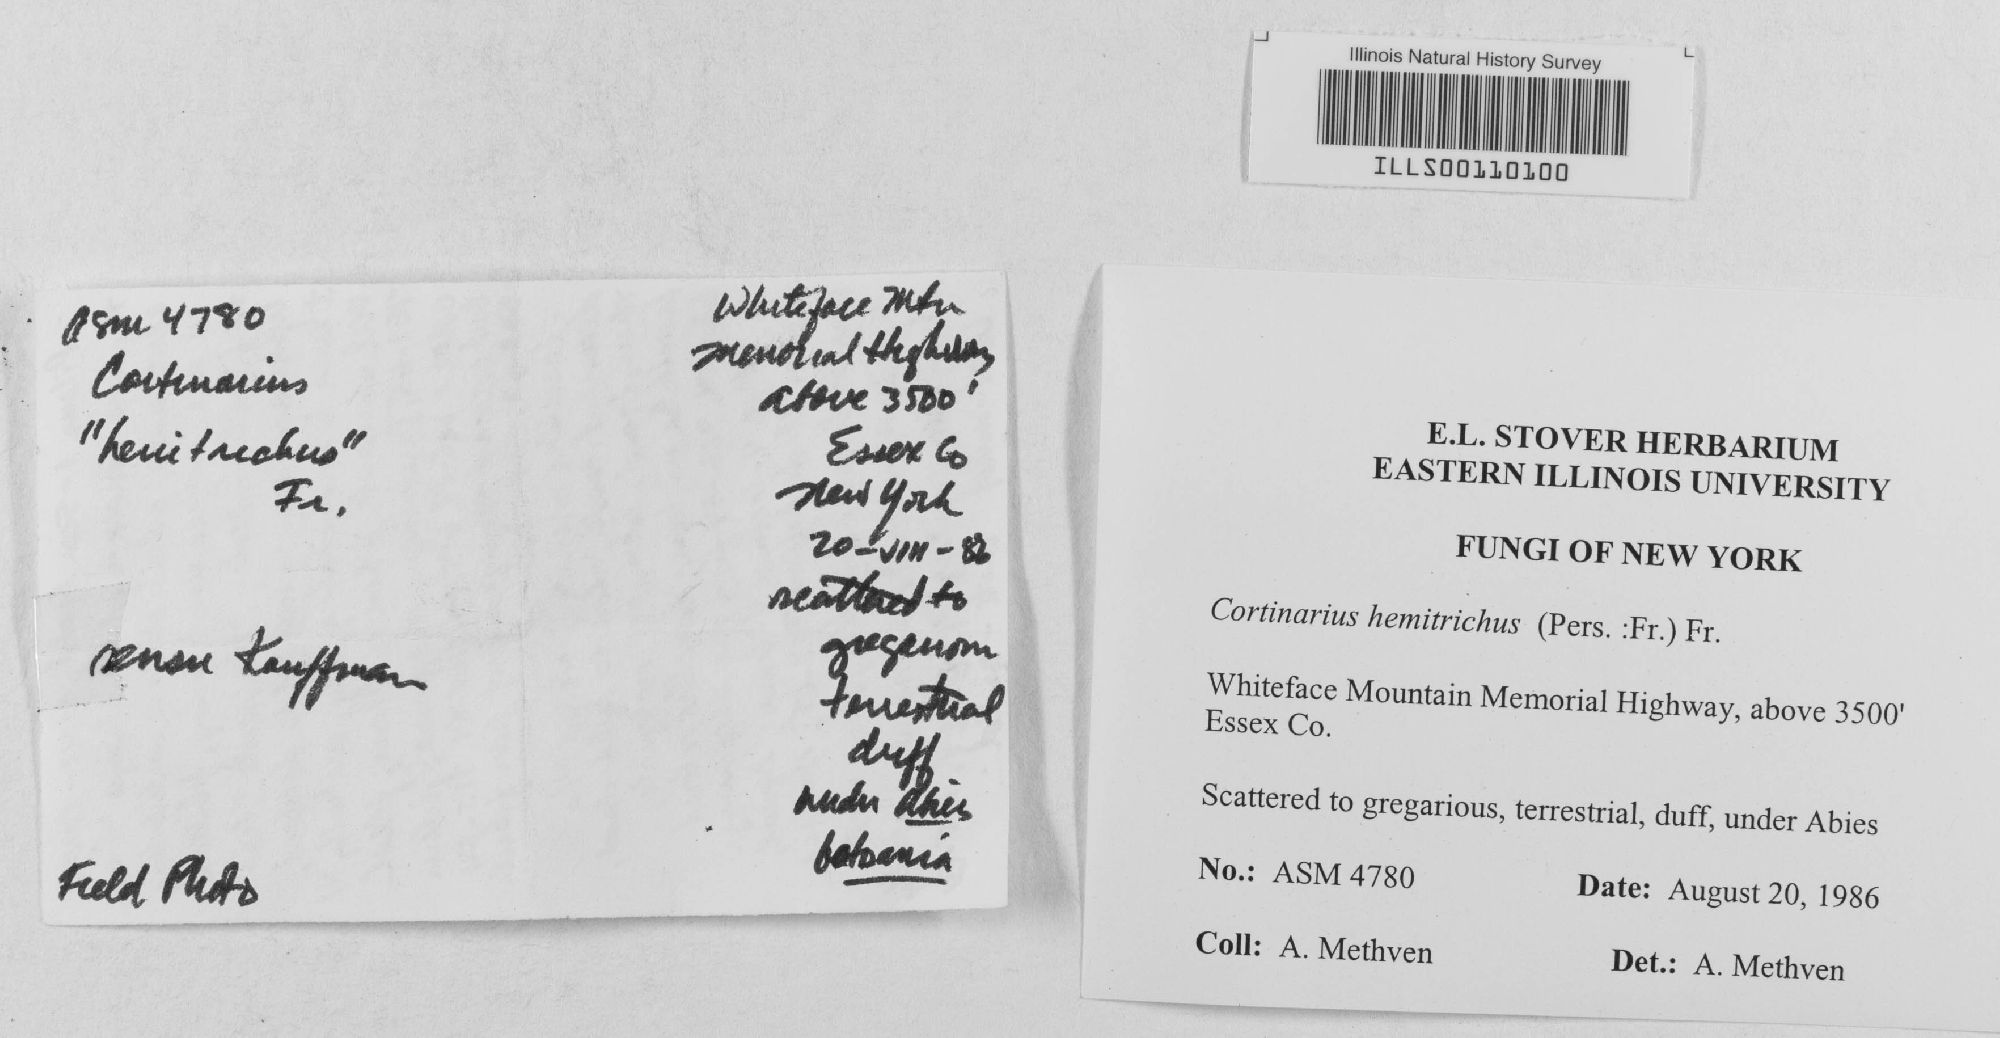 Illinois Natural History Survey
ILLS00110100
ASM 4780
Cortinarius
"hemitrichus"
Fr.
sensu Kauffman
Field Photo
Whiteface Mtn
Memorial Highway
above 3500'
Essex Co
New York
20-VIII-86
scattered to
gregarious
terrestrial
duff
under Abies
balsamia
E.L. STOVER HERBARIUM
EASTERN ILLINOIS UNIVERSITY
FUNGI OF NEW YORK
Cortinarius hemitrichus (Pers. :Fr.) Fr.
Whiteface Mountain Memorial Highway, above 3500'
Essex Co.
Scattered to gregarious, terrestrial, duff, under Abies
No.: ASM 4780 Date: August 20, 1986
Coll: A. Methven Det.: A. Methven